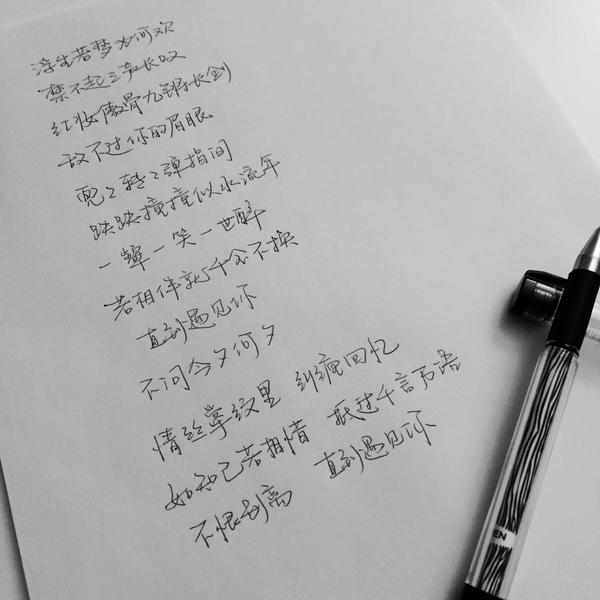 浮生若梦为何欢
禁不起三声长叹
红妆傲骨九郭长剑
敌不过你的眉眼
兜兜转转弹指间
跌跌撞撞似水流年
一颦一笑一世醉
若相伴就千金不换
直到遇见你
不问今夕何夕
情丝掌纹里 纠缠回忆
如知己若相惜 抵过千言万语
不恨别离 直到遇见你
EN